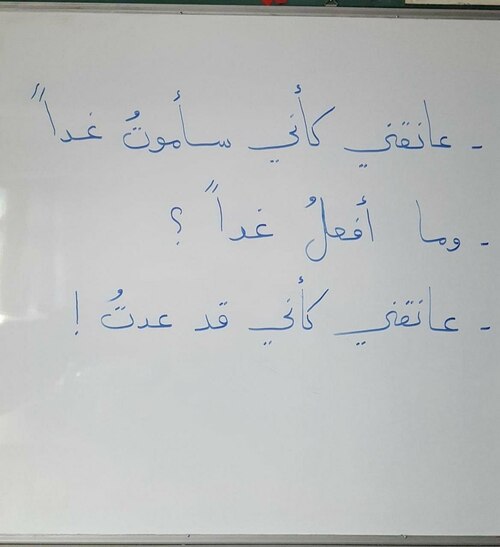 - عانقني كأني سأموتُ غداً
- وما أفعلُ غداً ؟
- عانقني كأني قد عدتُ !